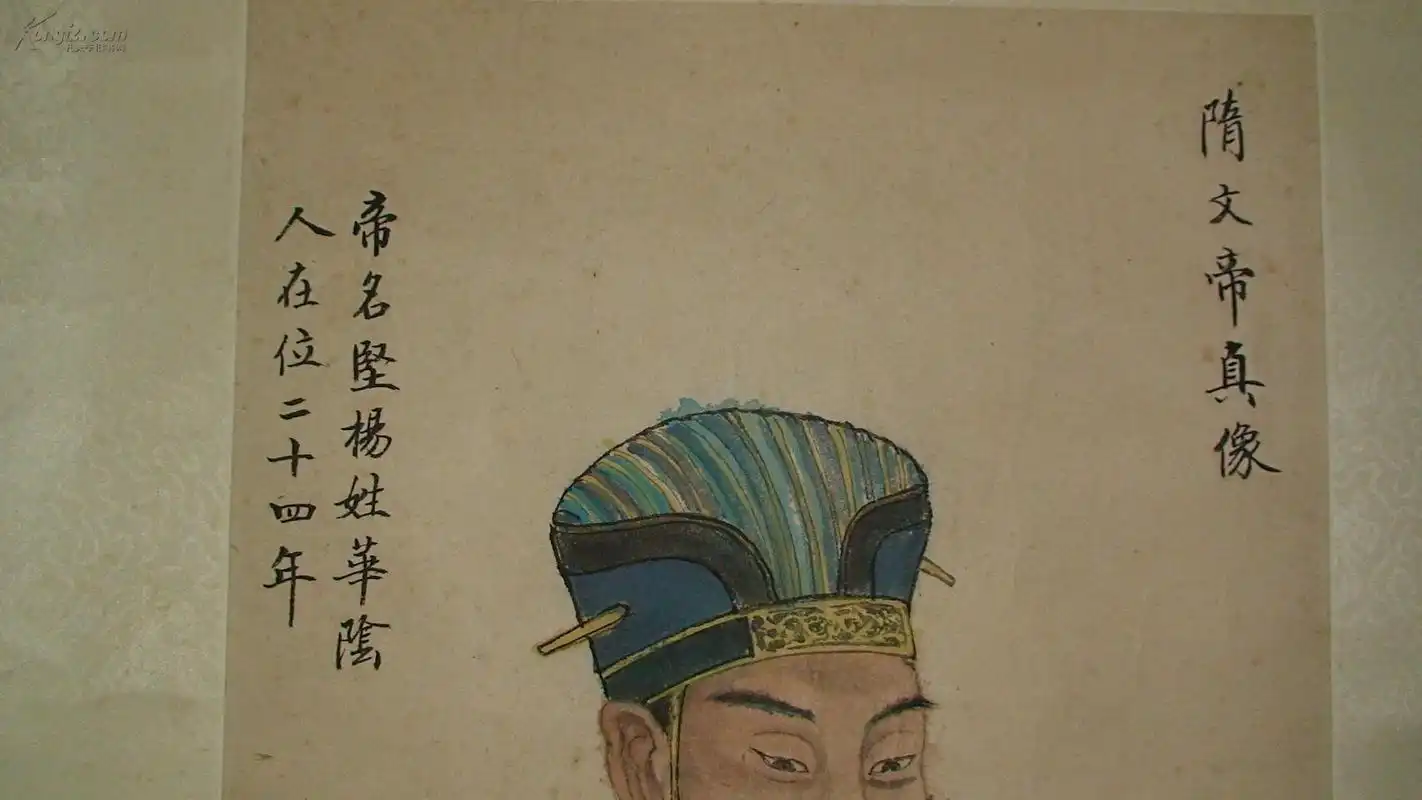 隋文帝真像
帝名堅楊姓華陰
人在位二十四年
Kongfz.com